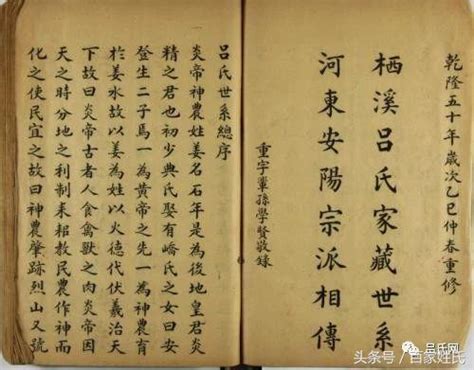 乾隆五十年歲次乙巳仲春重修
栖溪呂氏家藏世系
河東安陽宗派相傳
重字輩孫學賢敬錄
呂氏世系總序
炎帝神農姓姜名石年是為後地皇君炎
精之君也初少典氏娶有嶠氏之女曰安
登生二子焉一為黃帝之先一為神農育
於姜水故以姜為姓以火德代伏羲治天
下故曰炎帝古者人食禽獸之肉炎帝因
天之時分地之利制耒耜教民農作神而
化之使民宜之故曰神農肇跡烈山又號
吕氏网
头条号/百家姓氏